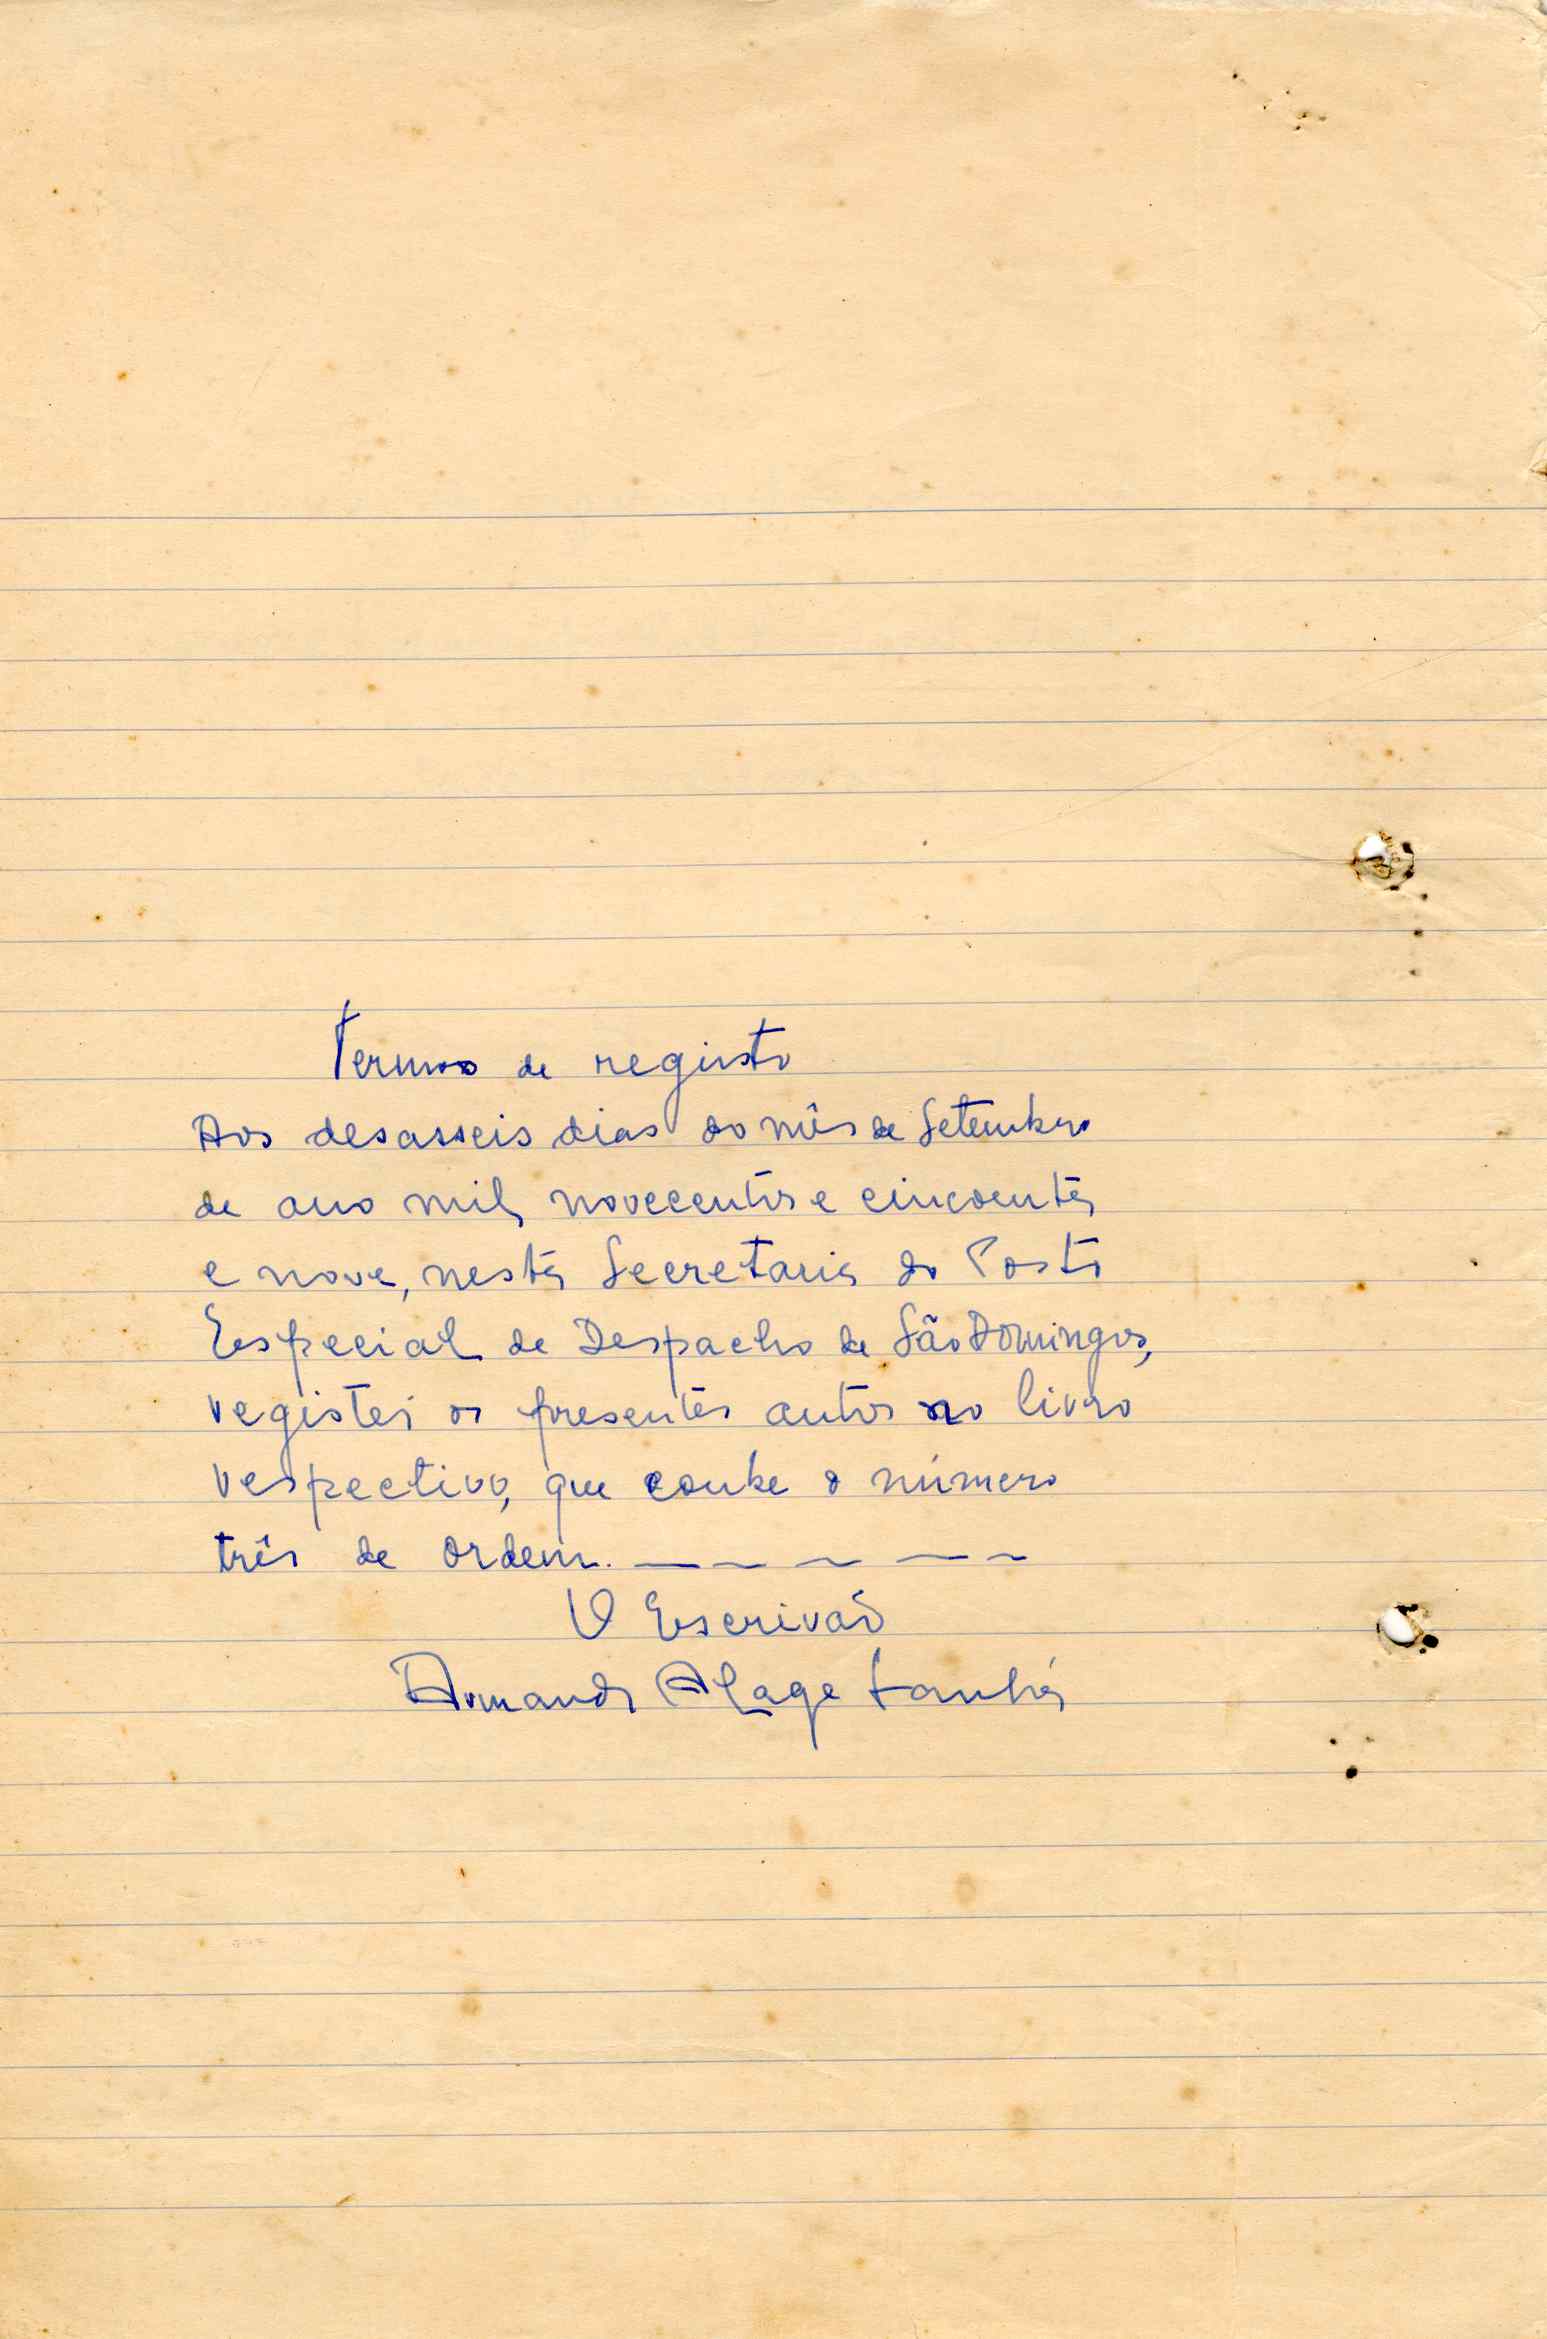 Termo de registo
Aos desasseis dias do mês de Setembro
de ano mil novecentos e cincoenta
e nove, nesta Secretaria do Posto
Especial de Despacho de São Domingos,
registei os presentes autos no livro
respectivo, que coube o número
três de ordem. — — — — —
O Escrivão
Armando Alage